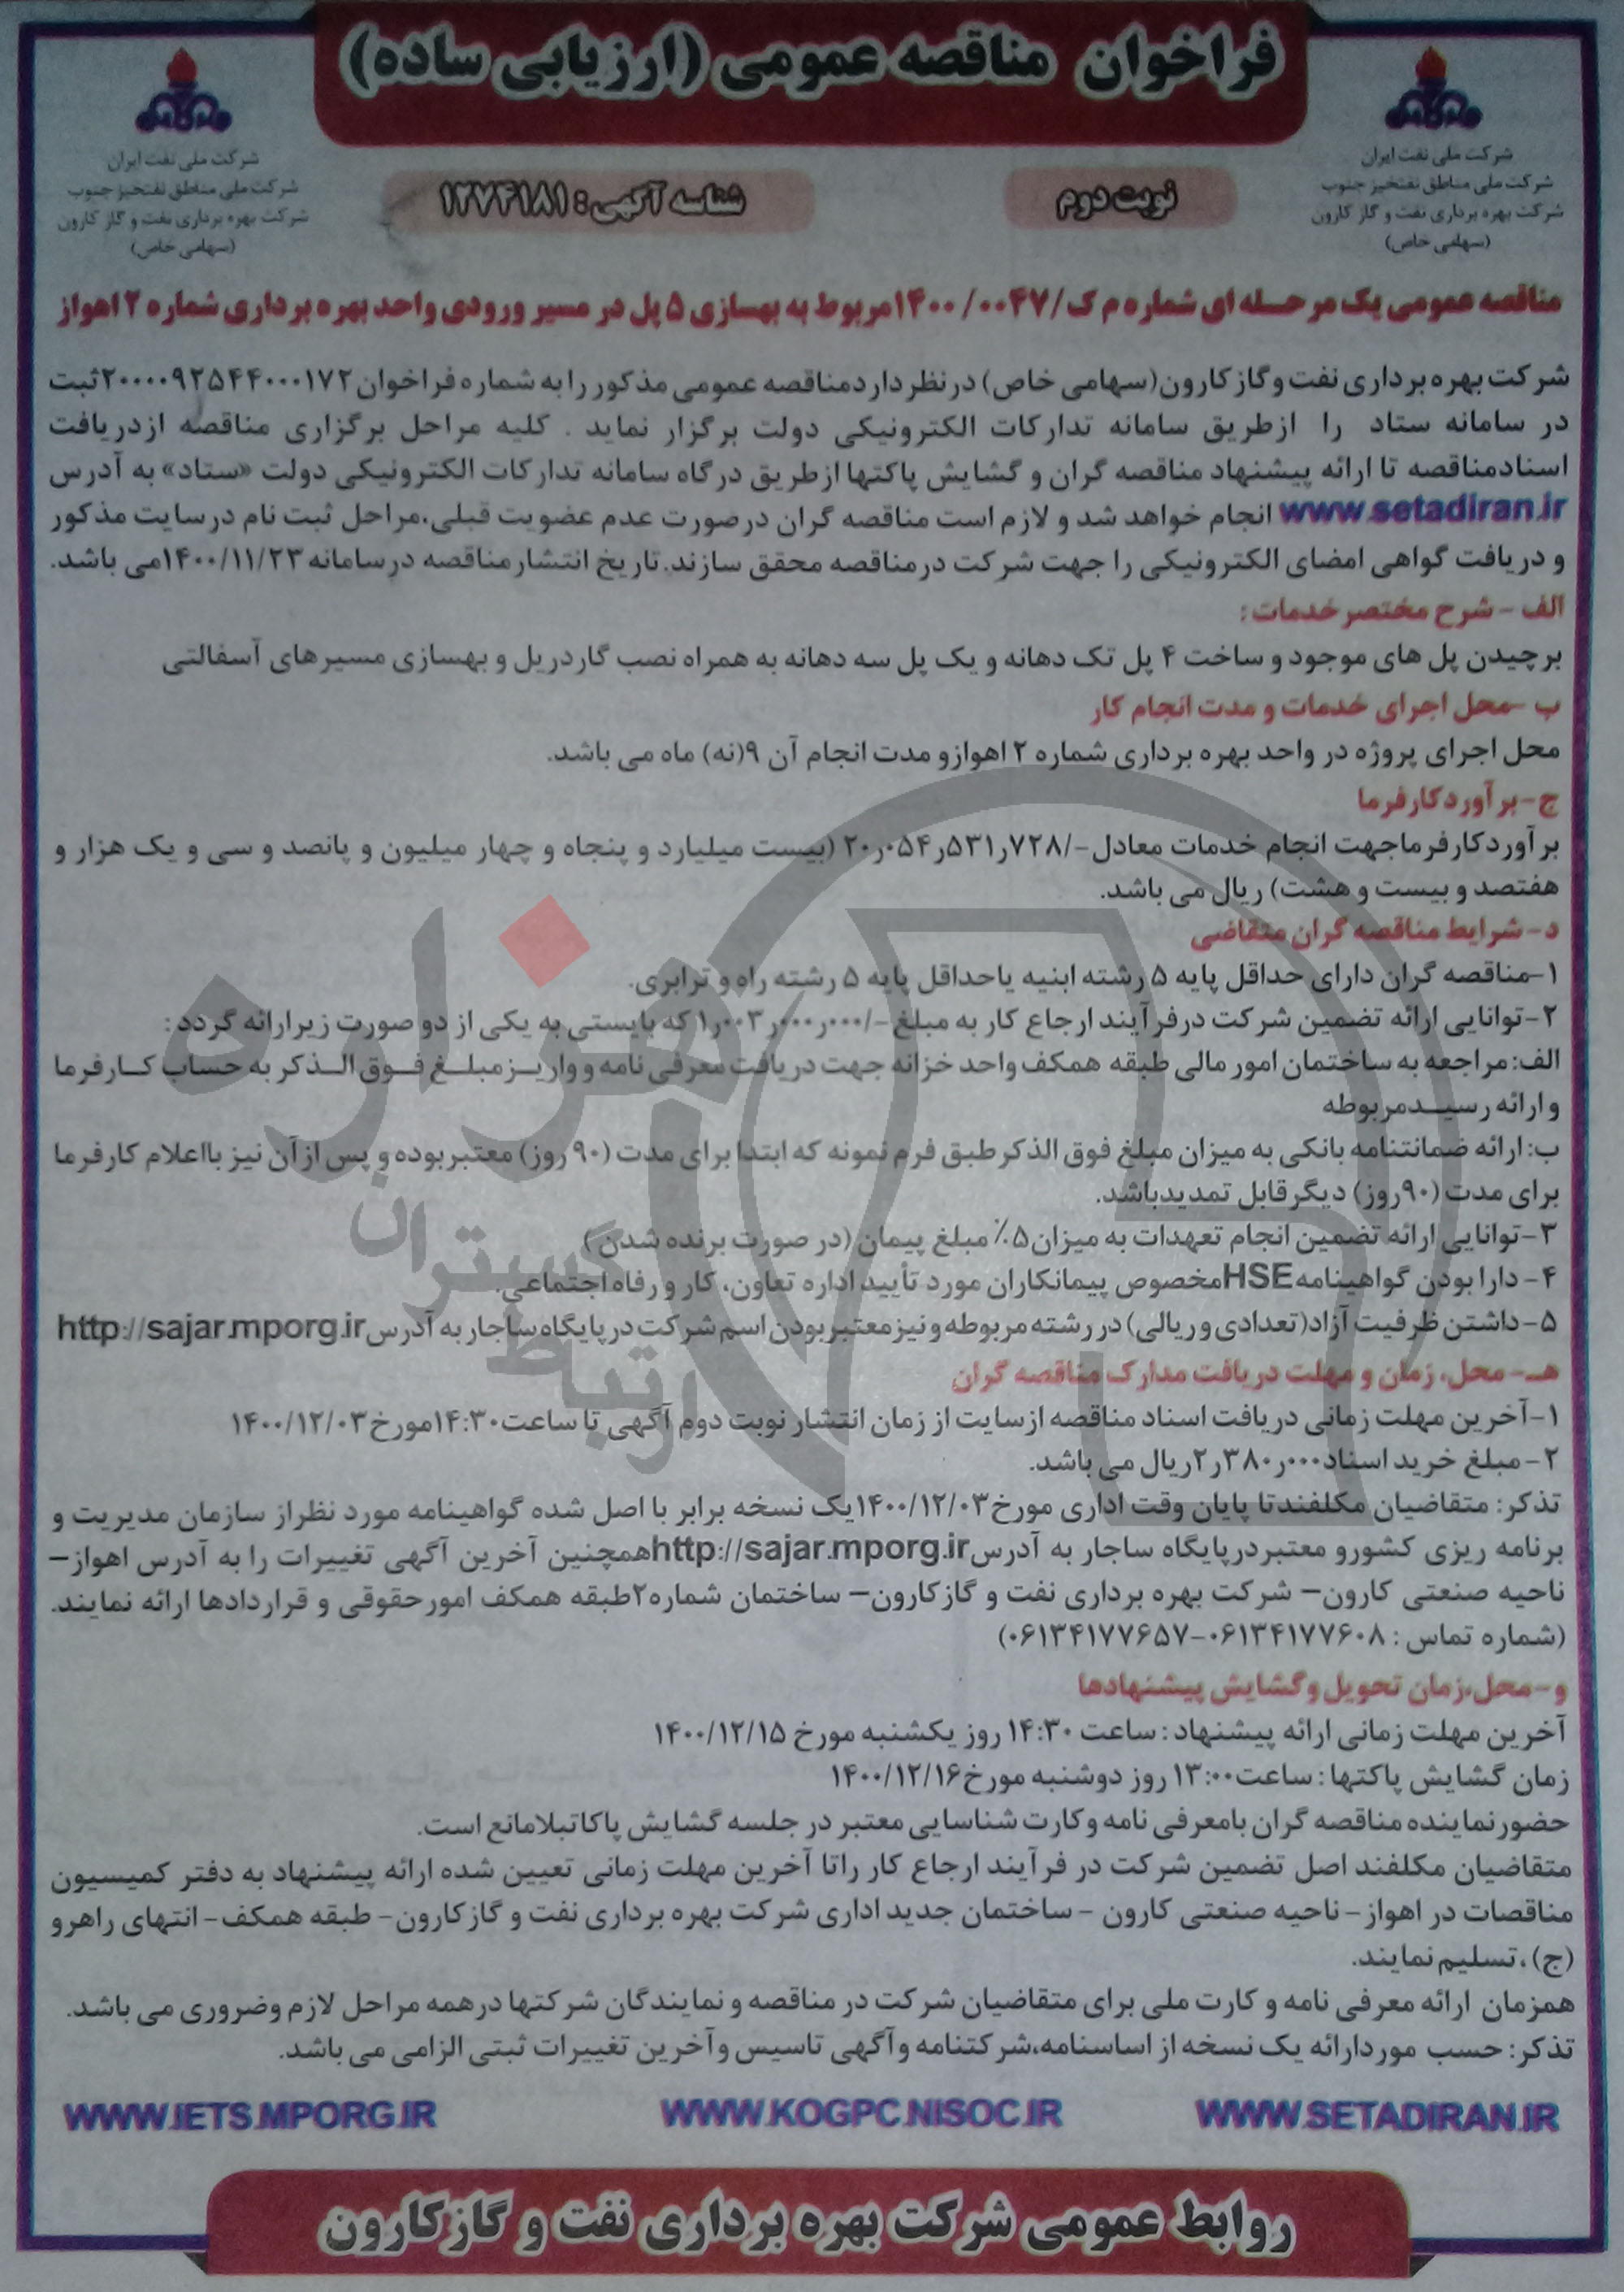 فراخوان مناقصه عمومی (ارزیابی ساده)
شرکت ملی نفت ایران
شرکت ملی مناطق نفتخیز جنوب
شرکت بهره برداری نفت و گاز کارون
(سهامی خاص)
شرکت ملی نفت ایران
شرکت ملی مناطق نفتخیز جنوب
شرکت بهره برداری نفت و گاز کارون
(سهامی خاص)
نوبت دوم
شناسه آگهی: ۱۲۷۴۱۸۱
مناقصه عمومی یک مرحله ای شماره م ک/۱۴۰۰/۰۰۴۷مربوط به بهسازی ۵ پل در مسیر ورودی واحد بهره برداری شماره ۲ اهواز
شرکت بهره برداری نفت وگاز کارون(سهامی خاص) درنظر داردمناقصه عمومی مذکور رابه شماره فراخوان۲۰۰۰۰۹۲۵۴۴۰۰۰۱۷۲ثبت
در سامانه ستاد را ازطریق سامانه تدارکات الکترونیکی دولت برگزار نماید . کلیه مراحل برگزاری مناقصه ازدریافت
اسنادمناقصه تا ارائه پیشنهاد مناقصه گران و گشایش پاکتها ازطریق درگاه سامانه تدارکات الکترونیکی دولت «ستاد» به آدرس
www.setadiran.ir انجام خواهد شد و لازم است مناقصه گران درصورت عدم عضویت قبلی،مراحل ثبت نام درسایت مذکور
و دریافت گواهی امضای الکترونیکی را جهت شرکت درمناقصه محقق سازند.تاریخ انتشارمناقصه درسامانه ۱۴۰۰/۱۱/۲۳می باشد.
الف - شرح مختصرخدمات:
برچیدن پل های موجود و ساخت ۴ پل تک دهانه و یک پل سه دهانه به همراه نصب گاردریل و بهسازی مسیرهای آسفالتی
ب -محل اجرای خدمات و مدت انجام کار
محل اجرای پروژه در واحد بهره برداری شماره ۲ اهوازو مدت انجام آن ۹(نه) ماه می باشد.
ج-برآوردکارفرما
برآوردکارفرماجهت انجام خدمات معادل -/۲۰ر۰۵۴ر۵۳۱ر۷۲۸ (بیست میلیارد و پنجاه و چهار میلیون و پانصد و سی و یک هزار و
هفتصد و بیست و هشت) ریال می باشد.
د- شرایط مناقصه گران متقاضی
۱-مناقصه گران دارای حداقل پایه ۵ رشته ابنیه یاحداقل پایه ۵ رشته راه و ترابری.
۲-توانایی ارائه تضمین شرکت درفرآیند ارجاع کار به مبلغ -/۱ر۰۰۳ر۰۰۰ر۰۰۰ که بایستی به یکی از دو صورت زیرارائه گردد :
الف: مراجعه به ساختمان امور مالی طبقه همکف واحد خزانه جهت دریافت معرفی نامه و واریز مبلغ فوق الذکر به حساب کارفرما
و ارائه رسیدمربوطه
ب: ارائه ضمانتنامه بانکی به میزان مبلغ فوق الذکرطبق فرم نمونه که ابتدا برای مدت (۹۰ روز) معتبربوده و پس ازآن نیز بااعلام کارفرما
برای مدت (۹۰روز) دیگرقابل تمدیدباشد.
۳-توانایی ارائه تضمین انجام تعهدات به میزان۵٪ مبلغ پیمان (در صورت برنده شدن)
۴- دارا بودن گواهینامهHSEمخصوص پیمانکاران مورد تأیید اداره تعاون، کار و رفاه اجتماعی.
۵-داشتن ظرفیت آزاد(تعدادی و ریالی) در رشته مربوطه و نیزمعتبربودن اسم شرکت درپایگاه ساجاربه آدرسhttp://sajar.mporg.ir
هـ- محل، زمان و مهلت دریافت مدارک مناقصه گران
۱-آخرین مهلت زمانی دریافت اسناد مناقصه ازسایت از زمان انتشار نوبت دوم آگهی تا ساعت۱۴:۳۰مورخ۱۴۰۰/۱۲/۰۳
۲- مبلغ خرید اسناد۲ر۳۸۰ر۰۰۰ریال می باشد.
تذکر: متقاضیان مکلفندتا پایان وقت اداری مورخ۱۴۰۰/۱۲/۰۳یک نسخه برابر با اصل شده گواهینامه مورد نظراز سازمان مدیریت و
برنامه ریزی کشورو معتبردرپایگاه ساجار به آدرسhttp://sajar.mporg.irهمچنین آخرین آگهی تغییرات را به آدرس اهواز–
ناحیه صنعتی کارون– شرکت بهره برداری نفت و گازکارون– ساختمان شماره۲طبقه همکف امورحقوقی و قراردادها ارائه نمایند.
(شماره تماس : ۰۶۱۳۴۱۷۷۶۰۸-۰۶۱۳۴۱۷۷۶۵۷)
و-محل،زمان تحویل وگشایش پیشنهادها
آخرین مهلت زمانی ارائه پیشنهاد : ساعت ۱۴:۳۰ روز یکشنبه مورخ ۱۴۰۰/۱۲/۱۵
زمان گشایش پاکتها : ساعت۱۳:۰۰ روز دوشنبه مورخ۱۴۰۰/۱۲/۱۶
حضورنماینده مناقصه گران بامعرفی نامه وکارت شناسایی معتبر در جلسه گشایش پاکاتبلامانع است.
متقاضیان مکلفند اصل تضمین شرکت در فرآیند ارجاع کار راتا آخرین مهلت زمانی تعیین شده ارائه پیشنهاد به دفتر کمیسیون
مناقصات در اهواز- ناحیه صنعتی کارون - ساختمان جدید اداری شرکت بهره برداری نفت و گازکارون- طبقه همکف- انتهای راهرو
(ج) ،تسلیم نمایند.
همزمان ارائه معرفی نامه و کارت ملی برای متقاضیان شرکت در مناقصه و نمایندگان شرکتها درهمه مراحل لازم وضروری می باشد.
تذکر: حسب موردارائه یک نسخه از اساسنامه،شرکتنامه وآگهی تاسیس وآخرین تغییرات ثبتی الزامی می باشد.
WWW.SETADIRAN.IR
WWW.KOGPC.NISOC.IR
WWW.IETS.MPORG.IR
روابط عمومی شرکت بهره برداری نفت و گازکارون
هزاره
گستران
ارتباط